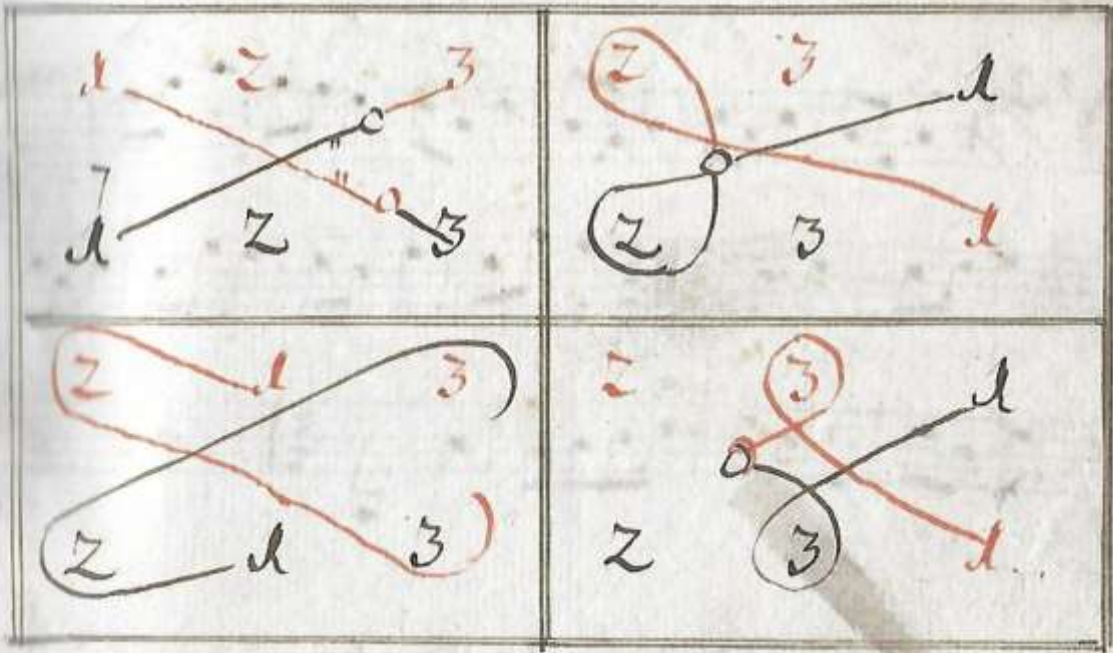 1 2 3
1 2 3
2 3 1
2 3 1
2 1 3
2 1 3
2 3 1
2 3 1